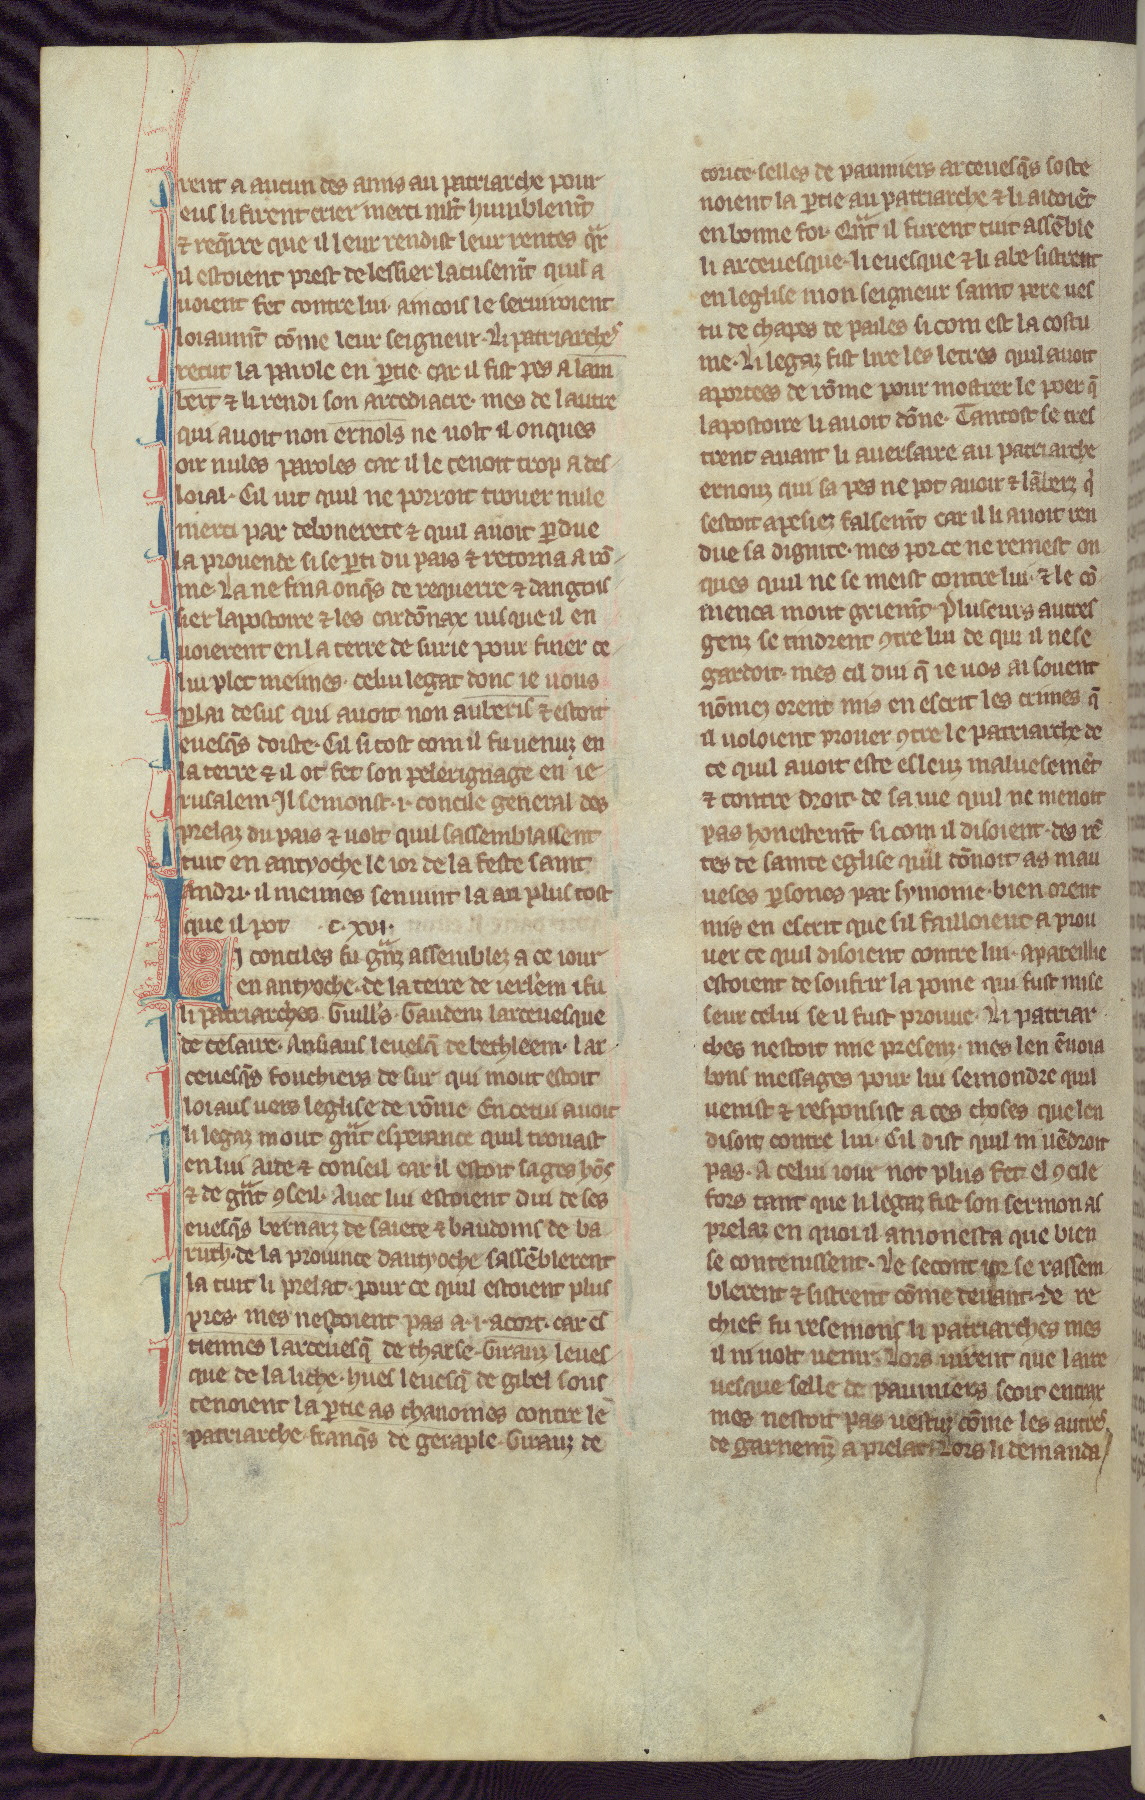 rent a aucun des amis au patriarche pour
eus li firent crier merci mlt̃ humblemt̃
⁊ reqͥrre que il leur rendist leur rentes qͣr
il estoient prest de lessier lacusemt̃ quil a
uoient fet contre lui· aincois le seruiroient
loiaumt̃ cõme leur seigneur· Li patriarches
recut la parole en ꝑtie· car il fist pes a lam
bert ⁊ li rendi son arcediacre· mes de lautre
qui auoit non ernols ne uolt il onques
oir nules paroles car il le tenoit trop a des
loial· Cil uit quil ne porroit trouer nule
merci par debonerete ⁊ quil auoit ꝑdue
la prouende si se ꝑti du pais ⁊ retorna a rõ
me· La ne fina onqͣs de requerre ⁊ dangois
sier lapostoire ⁊ les cardõnax iusque il en
uoierent en la terre de surie pour finer ce
lui plet meimes· celui legat donc ie uous
ꝑlai desus qui auoit non auberis ⁊ estoit
euesqͣs doiste· Cil si tost com il fu uenuz en
la terre ⁊ il ot fet son pelerignage en ie
rusalem· Il semonst ·i· concile general des
prelaz du pais ⁊ uolt quil sassemblassent
tuit en antyoche le ior de la feste saint
andri· il meimes sen uint la au plus tost
que il pot c· xvi·
Li conciles fu gͣnz assemblez a ce iour
en antyoche· de la terre de ierl'em i fu
li patriarches Guill's· Gaudenz larceuesque
de cesaire· Ansiaus leuesqͣ de bethleem· lar
ceuesqͣs fouchiers de sur qui mout estoit
loiaus uers leglise de rõme En cetui auoit
li legaz mout gͣnt esperance quil trouast
en lui aide ⁊ conseil car il estoit sages hõs
⁊ de gͣnt ꝯseil· Auec lui estoient dui de ses
euesqͣs bernarz de saiete ⁊ baudoins de ba
ruth· de la prouince dantyoche sassẽblerent
la tuit li prelat· pour ce quil estoient plus
pres· mes nestoient pas a ·i· acort· car es
tiennes larceuesqͣ de tharse· Girauz leues
que de la liche· hues leuesqͣ de gibel sous
tenoient la ꝑtie as chanoines contre le
patriarche· franqͣs de geraple· Girauz de
corice· selles de paumiers arceuesqͣs soste
noient la ꝑtie au patriarche ⁊ li aidoiẽt
en bonne foi· Qͣnt il furent tuit assẽble
li arceuesque· li euesque ⁊ li abe sistrent
en leglise mon seigneur saint pere ues
tu de chapes de pailes si com est la costu
me· Li legaz fist lire les letres quil auoit
aportees de rõme pour mostrer le poer q̃
lapostoire li auoit dõne· Tantost se tres
trent auant li auersaire au patriarche
ernouz qui sa pes ne pot auoir ⁊ lãberz qͥ
sestoit apesiez falsemt̃ car il li auoit ren
due sa dignite· mes por ce ne remest on
ques quil ne se meist contre lui· ⁊ le cõ
menca mout griemt̃· Pluseurs autres
genz se tindrent ꝯtre lui de qui il ne se
gardoit· mes cil dui q̃ ie uos ai souent
nõmez orent mis en escrit les crimes q̃
il uoloient prouer ꝯtre le patriarche de
ce quil auoit este esleuz maluesemẽt
⁊ contre droit· de sa uie quil ne menoit
pas honestemt̃ si com il disoient· des rẽ
tes de sainte eglise quil dõnoit as mau
ueses ꝑsones par symonie· bien orent
mis en escrit que sil failloient a prou
uer ce quil disoient contre lui· apareillie
estoient de soufrir la poine qui fust mise
seur celui se il fust prouue· Li patriar
ches nestoit mie presenz· mes len ẽuoia
bons messages pour lui semondre quil
uenist ⁊ responsist a ces choses que len
disoit contre lui· Cil dist quil ni uẽdroit
pas· A celui iour not plus fet el ꝯcile
fors tant que li legaz fist son sermon as
prelaz en quoi il amonesta que bien
se contenissent· Le secont ior se rassem
blerent ⁊ sistrent cõme deuant· De re
chief fu resemons li patriarches mes
il ni uolt uenir· Lors uirent que larce
uesque selle de paumiers seoit entrax
mes nestoit pas uestuz cõme les autres
de garnemẽz a prelat· Lors li demanda